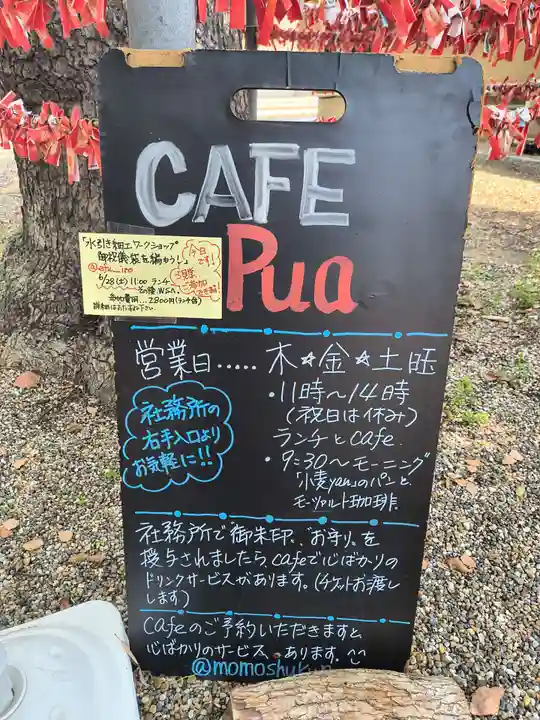 CAFE
Pua
「水引き細工ワークショップ
御祝儀袋を編かう!」
今日です!
6/28(土) 11:00 ランチ
営業日..... 木☆金☆土旺
・11時～14時
(祝日は休み)
ランチとcafe
・9:30～モーニング
「小麦yan」のパンと、
モーツァルト珈琲
社務所の
右手入口より
お気軽に!!
社務所で御朱印、お守りを
授与されましたらcafeで心ばかりの
ドリンクサービスがあります。(チケットお渡し
します)
cafeのご予約いただきますと、
心ばかりのサービス、あります。
@momoshuk